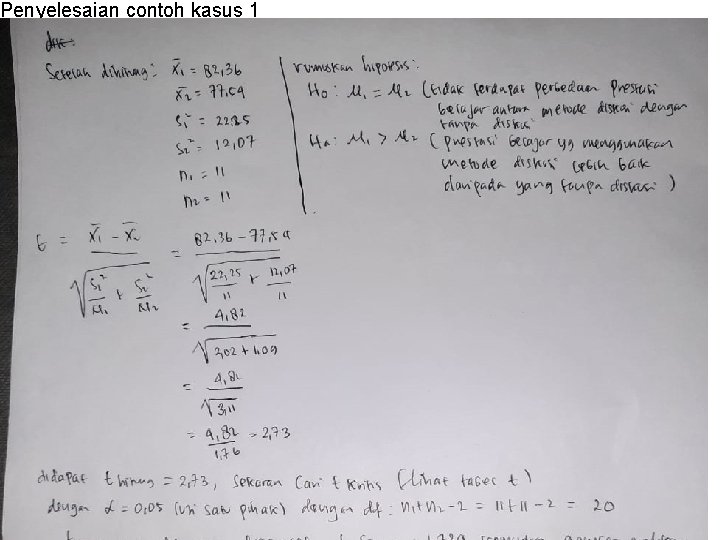 Penyelesaian contoh kasus 1
Setelah dihitung : x̄₁ = 82,36
x̄₂ = 77,54
s₁² = 22,25
s₂² = 12,07
n₁ = 11
n₂ = 11
rumuskan hipotesis :
H₀ : μ₁ = μ₂ (tidak terdapat perbedaan prestasi
belajar antara metode diskusi dengan
tanpa diskusi
Ha : μ₁ > μ₂ ( prestasi belajar yg menggunakan
metode diskusi lebih baik
daripada yang tanpa diskusi )
t = x̄₁ - x̄₂ / √ s₁²/n₁ + s₂²/n₂ = 82,36 - 77,54 / √ 22,25/11 + 12,07/11
= 4,82 / √ 2,02 + 1,09
= 4,82 / √ 3,11
= 4,82 / 1,76 = 2,73
didapat t hitung = 2,73, sekaran cari t kritis (lihat tabel t)
dengan α = 0,05 (uji satu pihak) dengan df : n₁+n₂-2 = 11+11-2 = 20